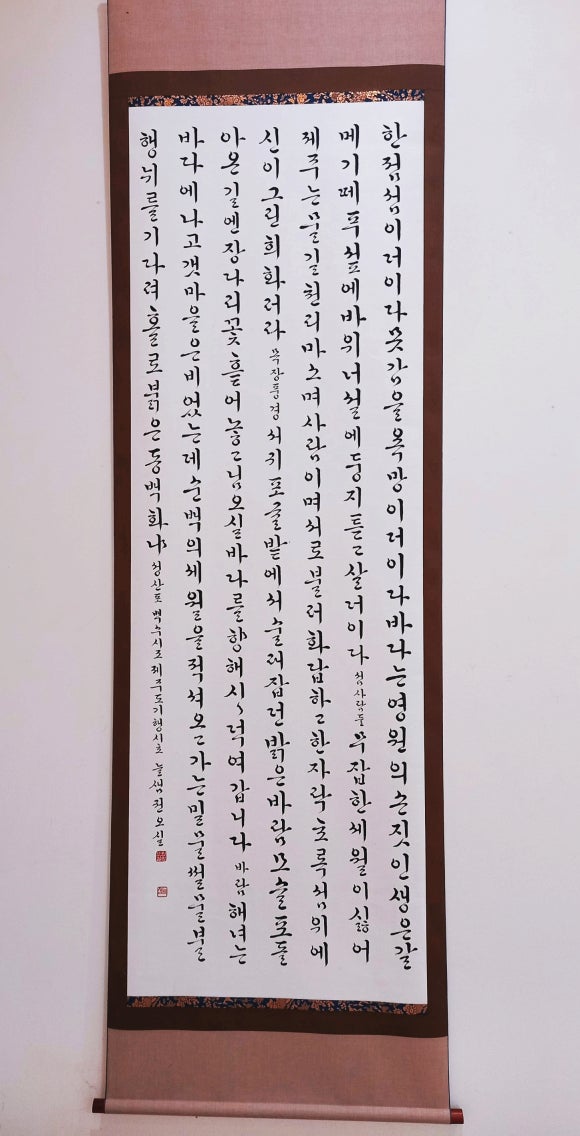 한점섬이러이다뭇감을욕망이러이다바다는영원의손짓인생은갈
메기떼푸섶에바위너설에둥지튼고살더이다 섬사람들 무잡한세월이싫어
제주는물길천리마소며사람이며서로불러화답하고한자락초록섬위에
신이그린희화러라 목장풍경 서귀포귤밭에서술래잡던밝은바람모슬포돌
아온길엔장다리꽃흩어놓고님오실바다를향해시시덕여갑니다 바람 해녀는
바다에나고갯마을은비었는데순백의세월을적셔오고가는밀물썰물불
행뉘를기다려홀로붉은동백화냐 성산포 백수시조제주도기행시초 늘샘권오실